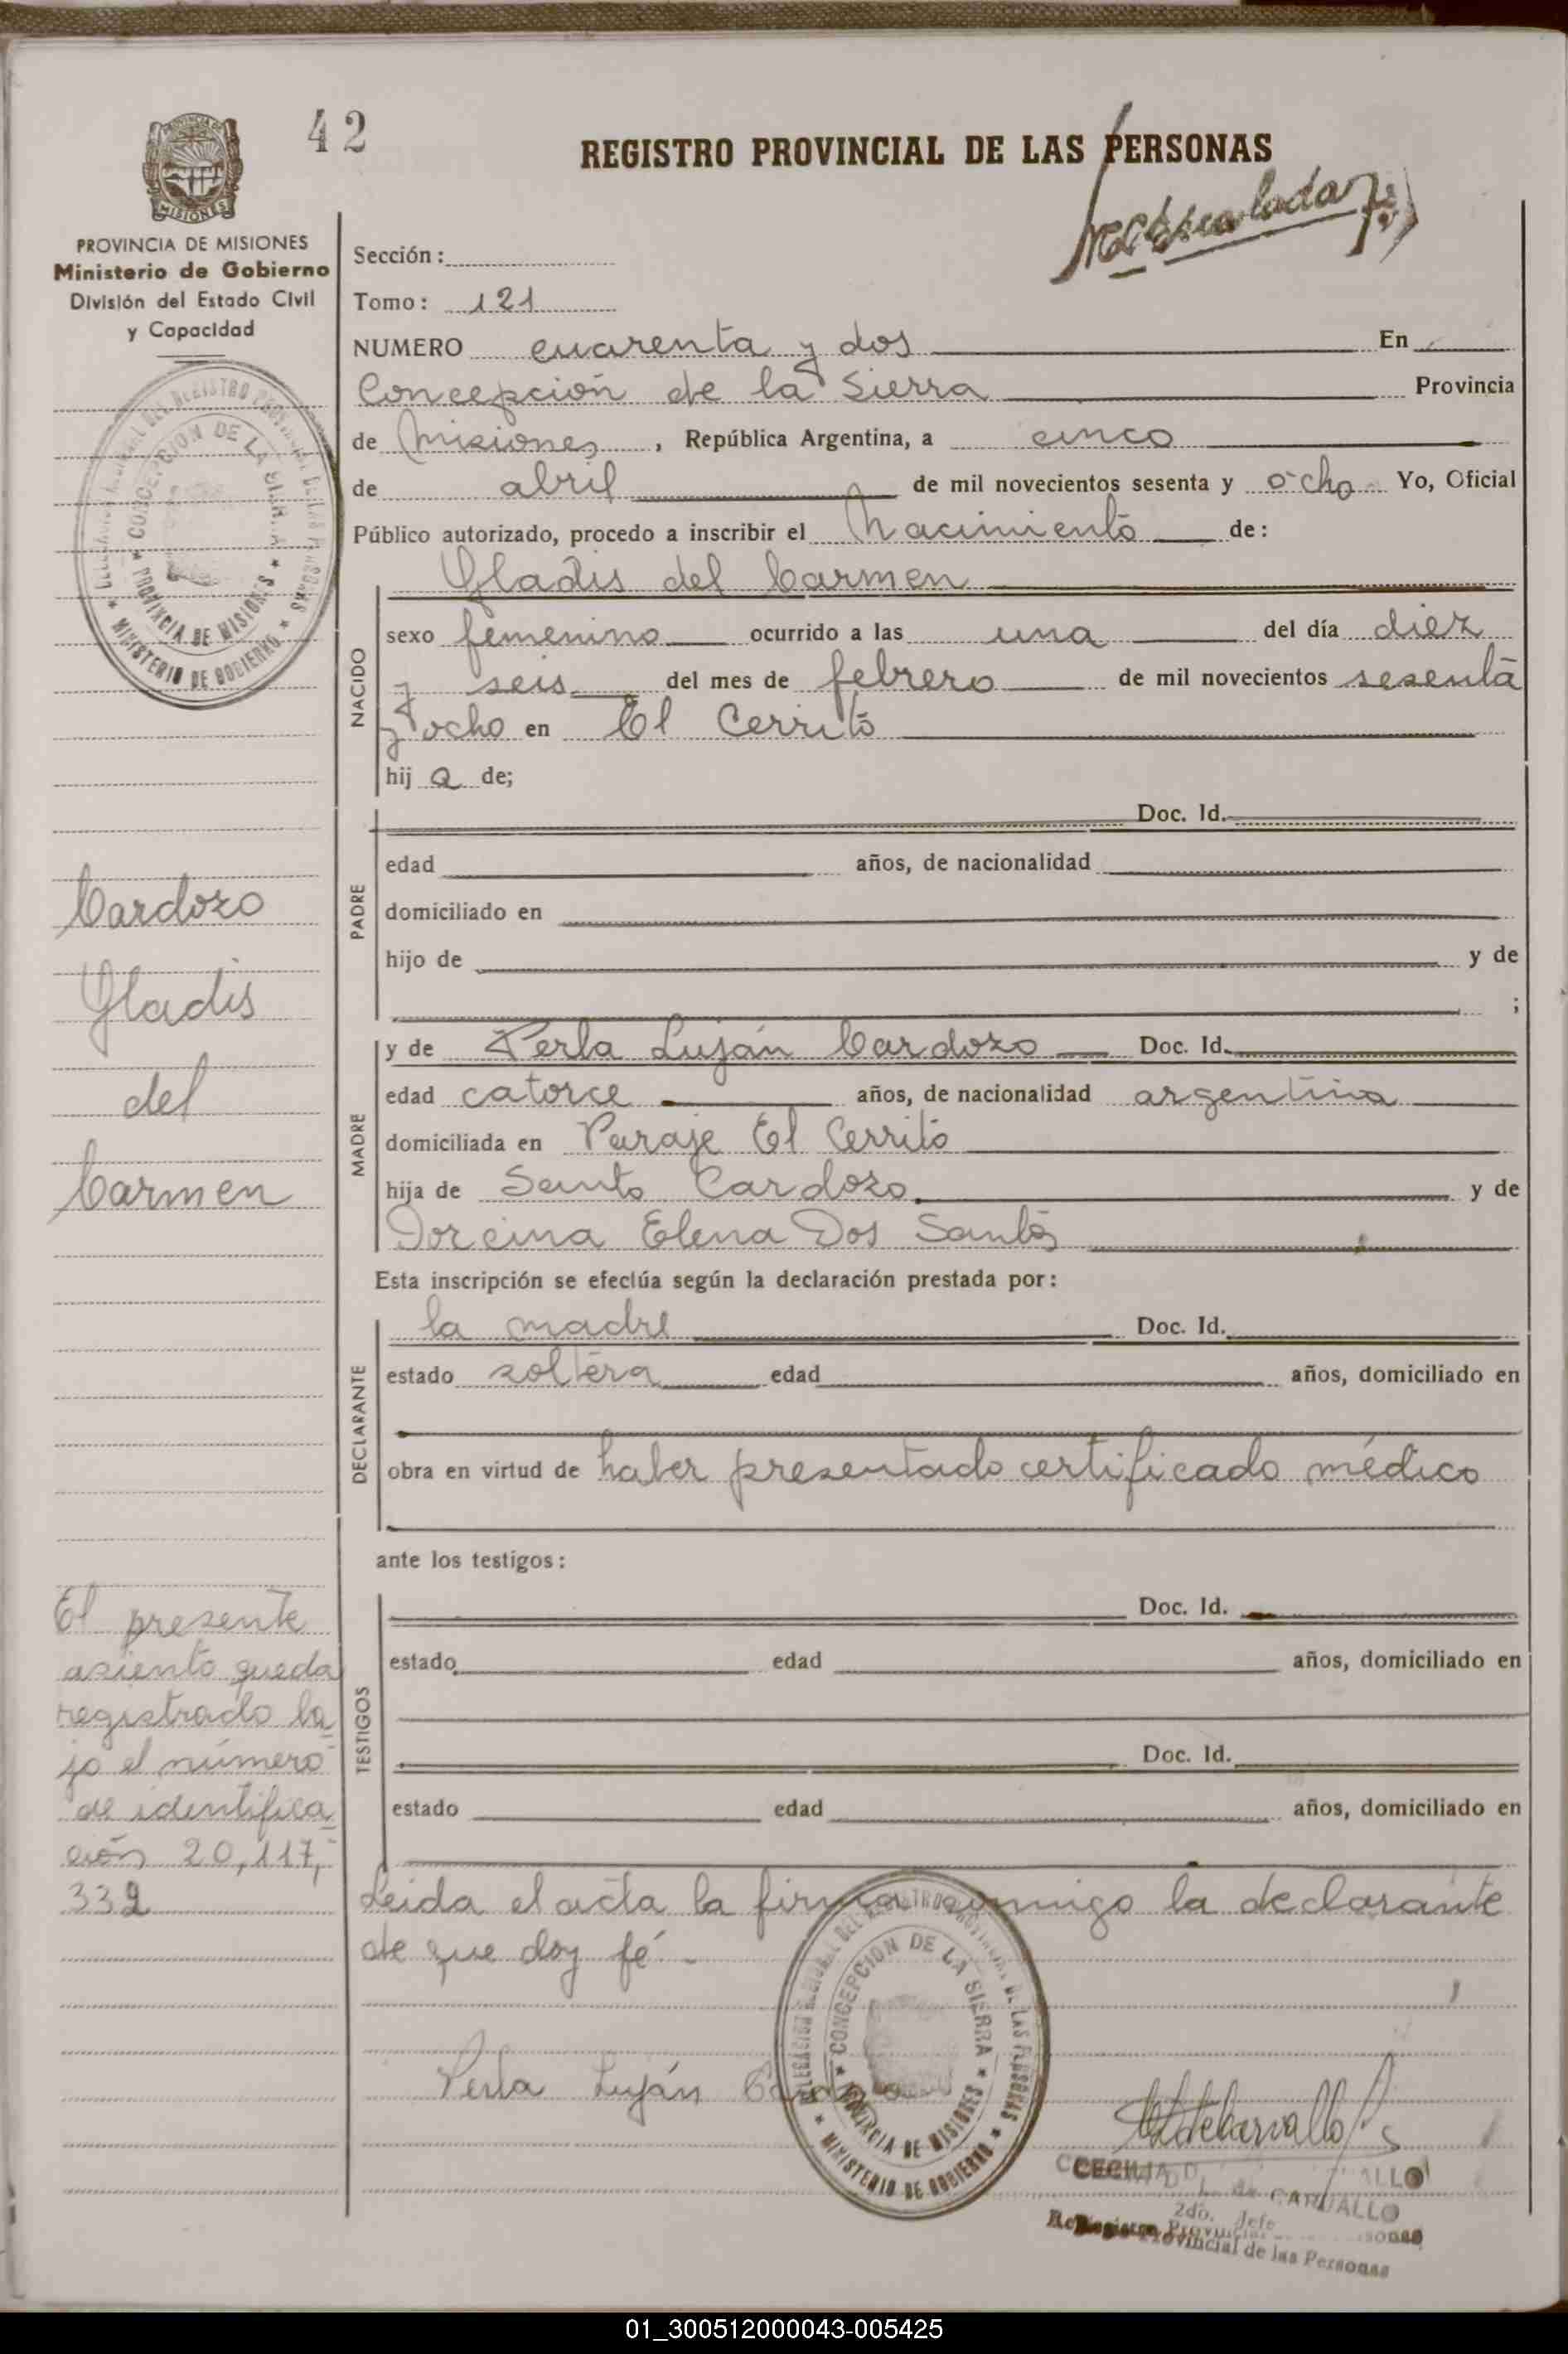 42
REGISTRO PROVINCIAL DE LAS PERSONAS
MISIONES
PROVINCIA DE MISIONES
Ministerio de Gobierno
División del Estado Civil
y Capacidad
Sección:
Tomo: 121
NUMERO cuarenta y dos En
Concepción de la Sierra Provincia
de Misiones, República Argentina, a cinco
de abril de mil novecientos sesenta y ocho Yo, Oficial
Público autorizado, procedo a inscribir el Nacimiento de:
Gladis del Carmen
NACIDO
sexo femenino ocurrido a las una del día diez
y seis del mes de febrero de mil novecientos sesenta
y ocho en El Cerrito
hij a de;
PADRE
Doc. Id.
edad años, de nacionalidad
domiciliado en
hijo de y de
;
MADRE
y de Perla Luján Cardozo Doc. Id.
edad catorce años, de nacionalidad argentina
domiciliada en Paraje El Cerrito
hija de Santo Cardozo y de
Dorcina Elena Dos Santos
Esta inscripción se efectúa según la declaración prestada por:
DECLARANTE
la madre Doc. Id.
estado soltera edad años, domiciliado en
obra en virtud de haber presentado certificado médico
ante los testigos:
TESTIGOS
Doc. Id.
estado edad años, domiciliado en
Doc. Id.
estado edad años, domiciliado en
Leida el acta la firma conmigo la declarante
de que doy fé.-
Perla Luján Cardozo
CONCEPCION DE LA SIERRA
PROVINCIA DE MISIONES
MINISTERIO DE GOBIERNO
CECILIA D. L. de CARVALLO
2do. Jefe
Registro Provincial de las Personas
CONCEPCION DE LA SIERRA
PROVINCIA DE MISIONES
MINISTERIO DE GOBIERNO
Cardozo
Gladis
del
Carmen
El presente
asiento queda
registrado ba
jo el número
de identifica
ción 20,117,
332
01_300512000043-005425